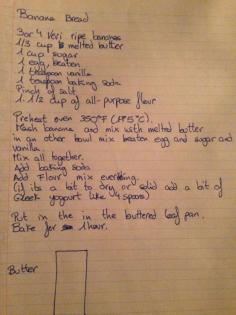 Banana Bread
3or 4 Veri ripe bananes
1/3 cup melted butter
1 cup sugar
1 egg, beaten
1 teaspoon vanilla
1 teaspoon baking soda
Pinch of salt
1. 1/2 cup of all-purpose flour
Preheat oven 350°F (175°C).
Mach banana and mix with melted butter
in an other bowl mix beaten egg and sugar and
vanilla.
Mix all together.
Add baking soda
Add Flour mix everything.
(if its a bit to dry or solid add a bit of
Greek yogourt like 4 spoons)
Put in the in the buttered loaf pan.
Bake for 1 hour.
Butter